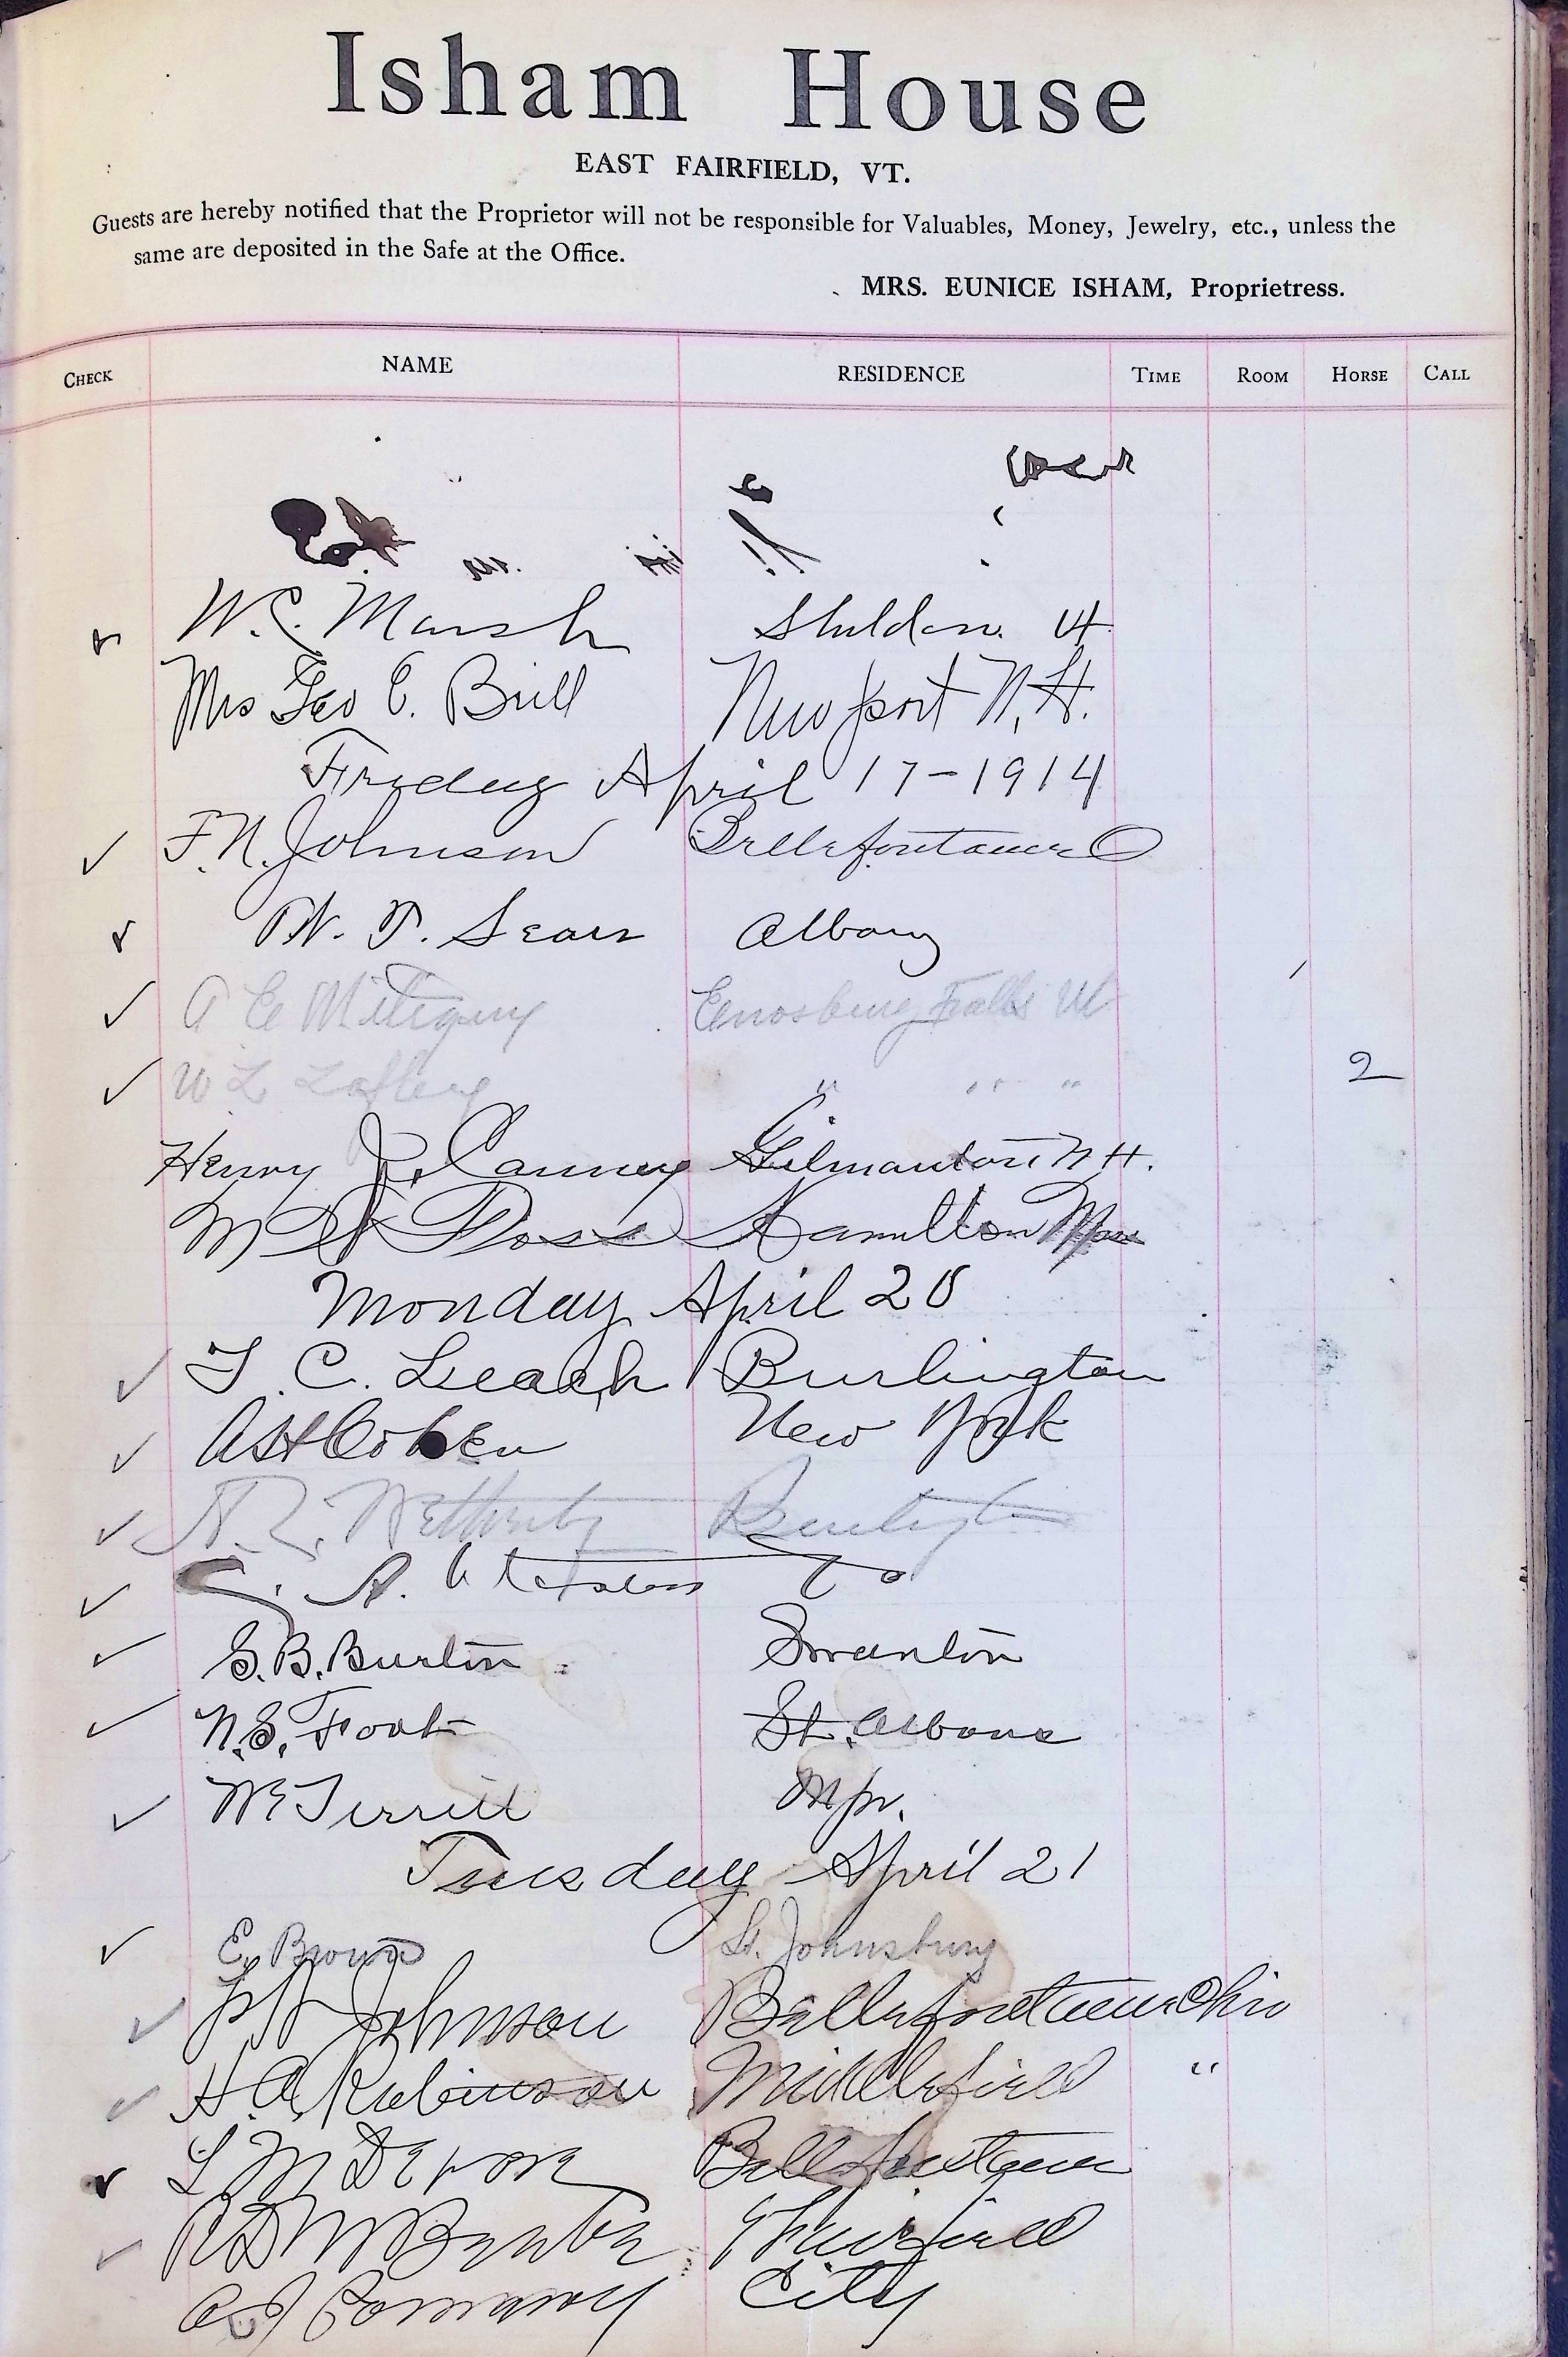 Isham House
EAST FAIRFIELD, VT.
Guests are hereby notified that the Proprietor will not be responsible for Valuables, Money, Jewelry, etc., unless the
same are deposited in the Safe at the Office.
MRS. EUNICE ISHAM, Proprietress.
CHECK NAME RESIDENCE TIME ROOM HORSE CALL
W.C. Marsh Sheldon Vt
Mrs Geo E. Brill Newport N.H.
Friday April 17-1914
F.N. Johnson Bellefontaine O
W. P. Sears Albany
A E Mitiguy Enosburg Falls Vt
W L Laflery " " " 2
Henry J. Canney Gilmanton N H.
M Ross Hamilton Mass
Monday April 20
T. C. Leach Burlington
A S H Cohen New York
Burlington
C. A.
G.B. Burton Swanton
N.S. Foot St. Albans
W E Terrill Mpr.
Tuesday April 21
E. Brown St. Johnsbury
Johnson Bellefontaine Ohio
H.A. Robinson Middlefield "
L M Devore Bellefontaine
E Fairfield
City